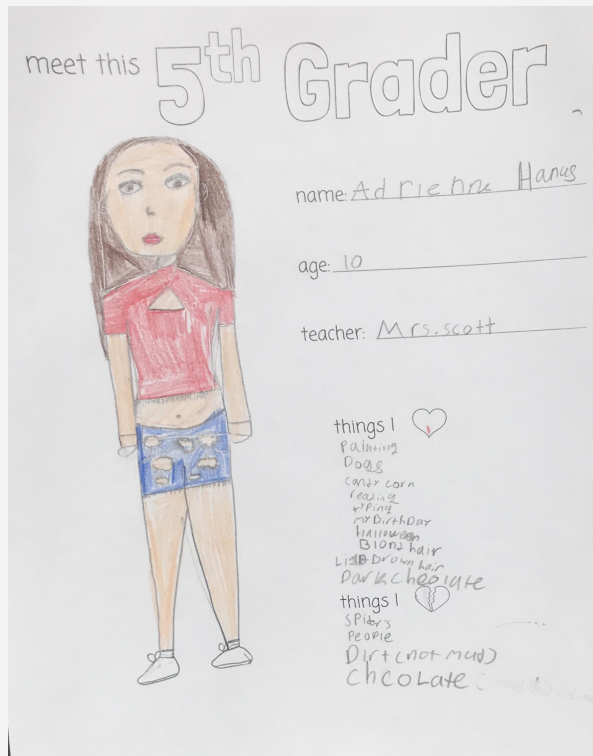 meet this 5th Grader
name: Adrienne Hanus
age: 10
teacher: Mrs. scott
things I
Painting
Dogs
candy corn
reading
typing
my BirthDay
halloween
Blond hair
brown hair
Dark cheolate
things I
SPiders
PeoPle
Dirt (not mud)
chcoLate